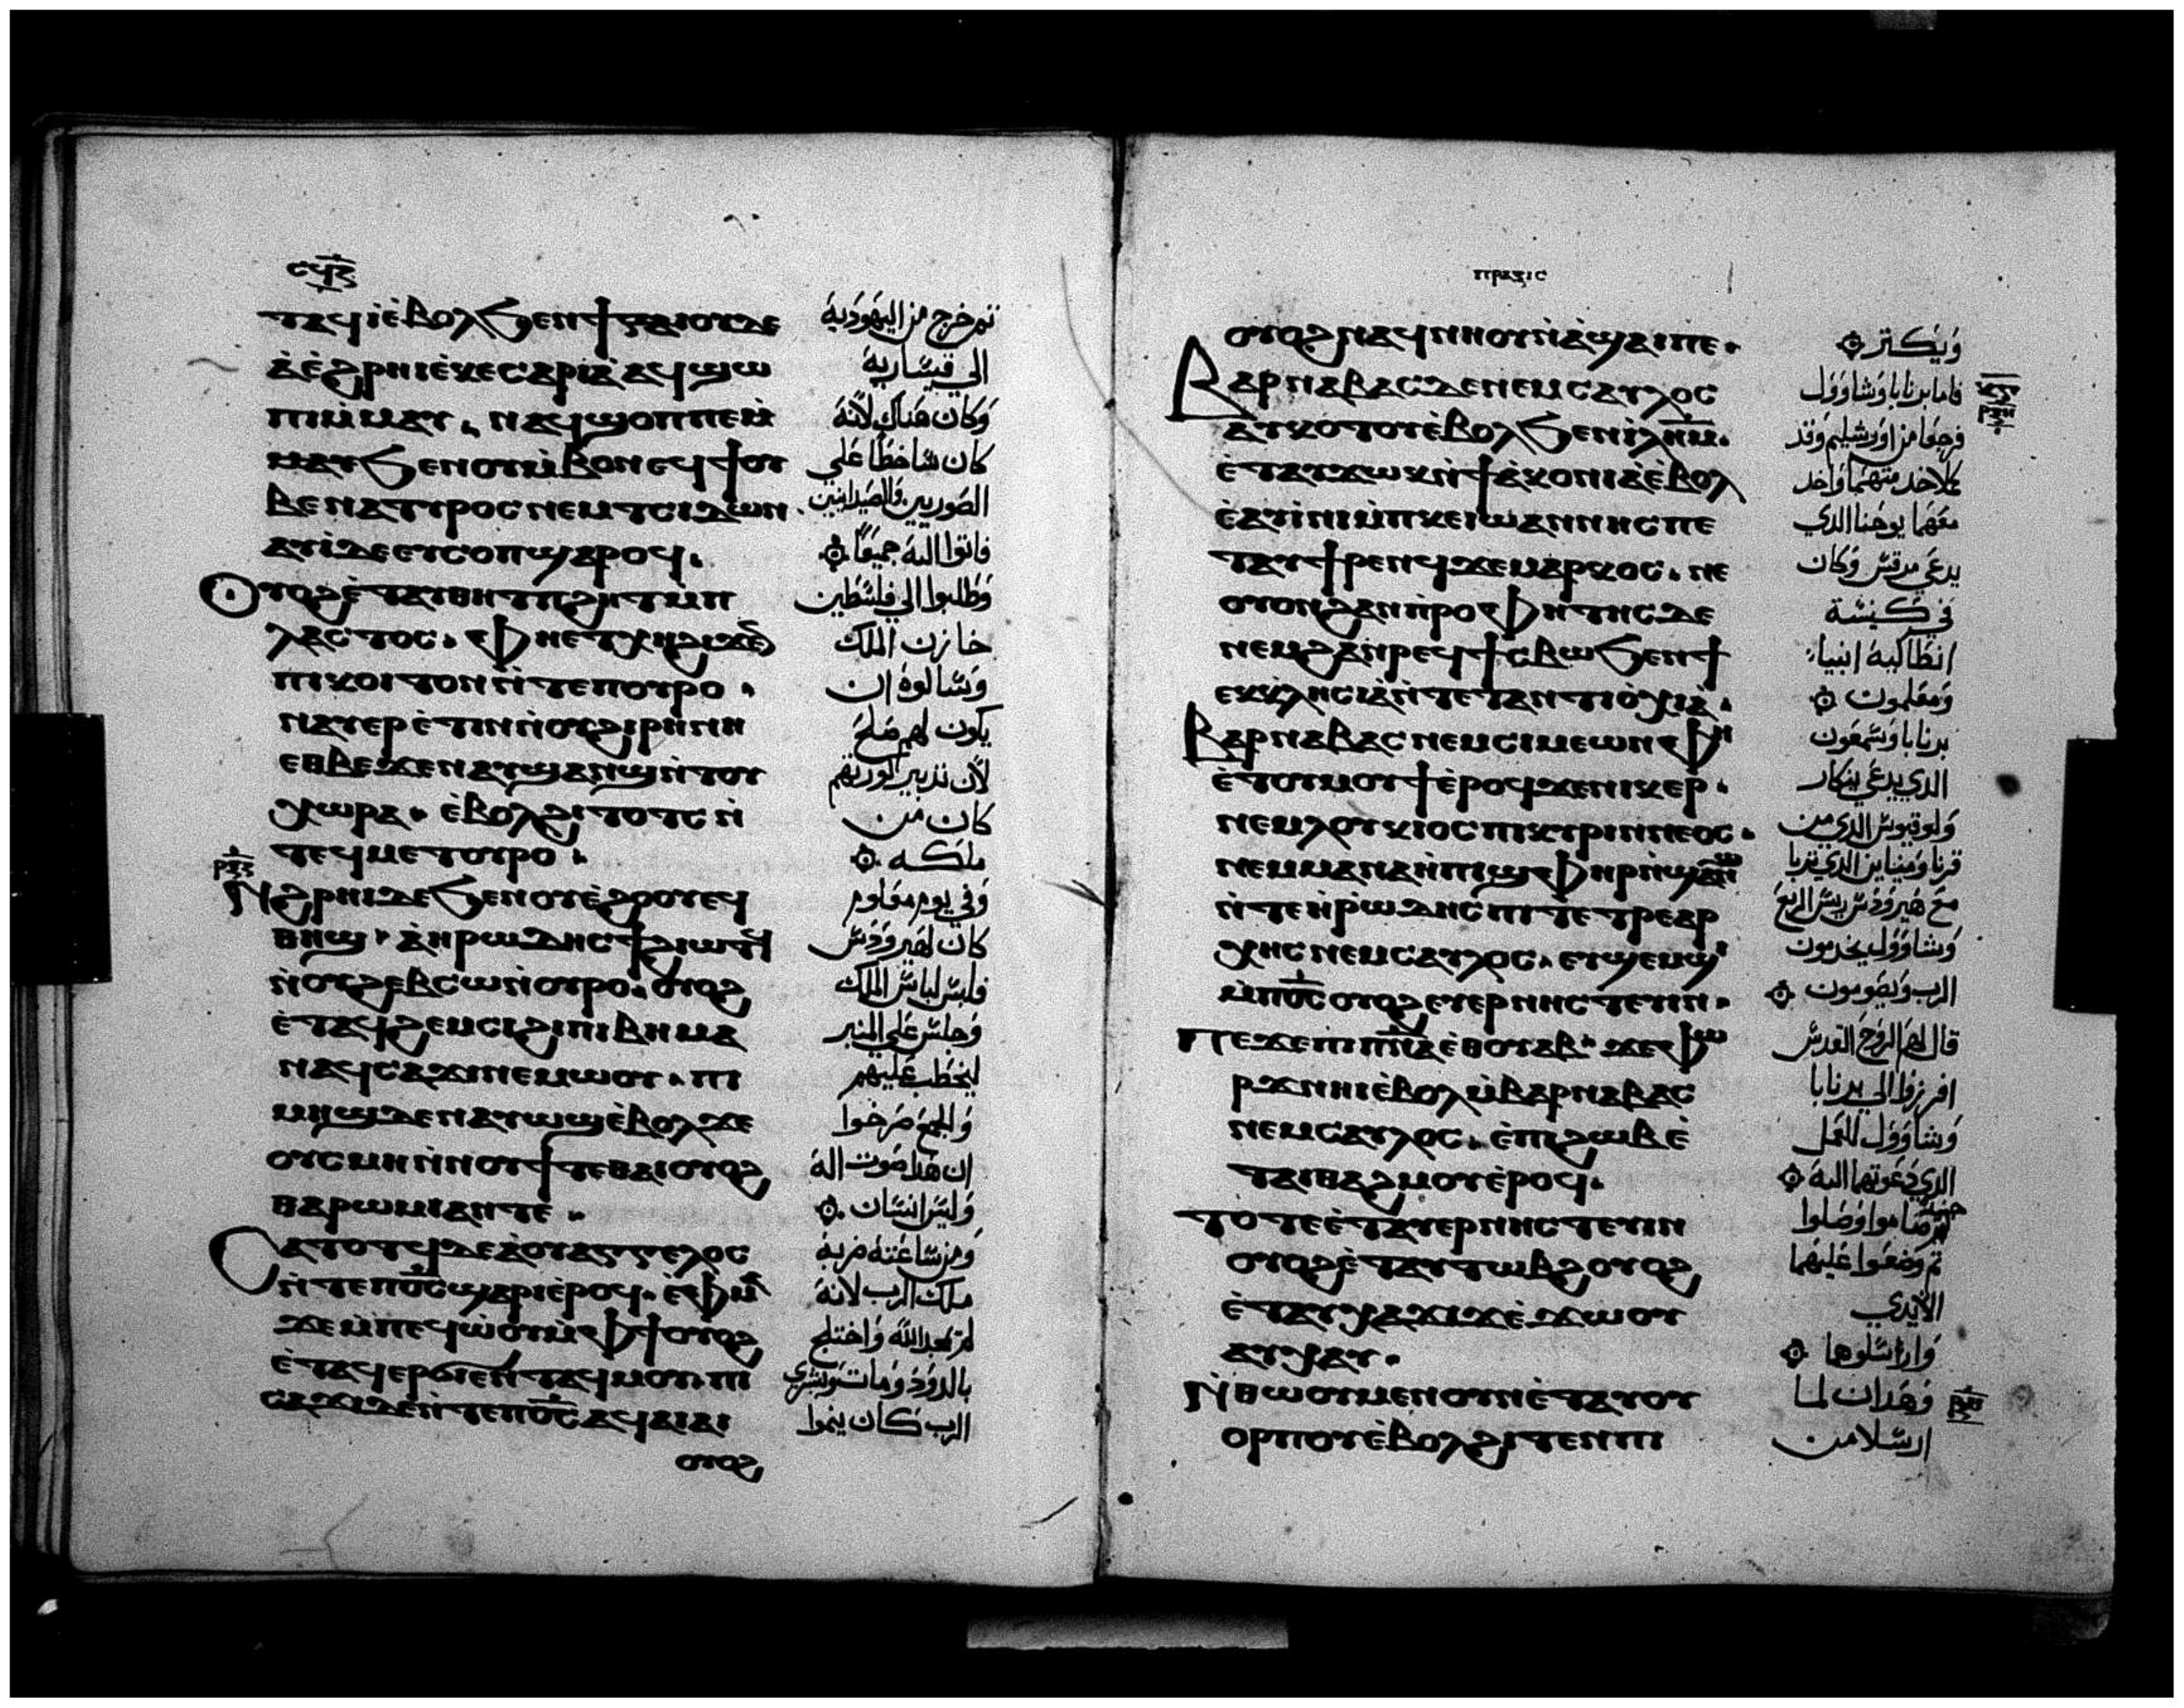 ⲥϥⲍ
ⲧⲁϥⲓ̀ⲉ̀ⲃⲟⲗϧⲉⲛϯⲓⲟⲩⲇⲉ
ⲁ̀ⲉ̀ϩⲣⲏⲓⲉ̀ⲕⲉⲥⲁⲣⲓⲁ̀ⲁϥϣⲱ
ⲡⲓⲙ̀ⲙⲁⲩ. ⲛⲁϥϣⲟⲡⲡⲉⲙ̀
ⲙⲁⲩϧⲉⲛⲟⲩⲙ̀ⲃⲟⲛⲉϥϯⲟⲩ
ⲃⲉⲛⲁⲧⲩⲣⲟⲥⲛⲉⲙⲧⲥⲓⲇⲱⲛ.
ⲁⲩⲓ̀ⲇⲉⲉⲩⲥⲟⲡϣⲁⲣⲟϥ.
ⲟⲩⲟϩⲉ̀ⲧⲁⲩⲑⲏⲧⲡϩⲏⲧⲙ̀ⲡ
ⲗⲁⲥⲧⲟⲥ. ⲫⲏⲉⲧⲭⲏϩⲓϫⲉⲛ
ⲡⲓⲕⲟⲓⲧⲟⲛⲛ̀ⲧⲉⲡⲟⲩⲣⲟ.
ⲛⲁⲩⲉⲣⲉ̀ⲧⲓⲛⲛ̀ⲟⲩϩⲓⲣⲏⲛⲏ
ⲉⲑⲃⲉϫⲉⲛⲁⲩϣⲁⲛϣⲛ̀ⲧⲟⲩ
ⲭⲱⲣⲁ. ⲉ̀ⲃⲟⲗϩⲓⲧⲟⲧⲥⲛ̀
ⲧⲉϥⲙⲉⲧⲟⲩⲣⲟ.
ⲣⲝⲍ
ⲛϩⲣⲏⲓⲇⲉϧⲉⲛⲟⲩⲉ̀ϩⲟⲟⲩⲉϥ
ⲑⲏϣ. ⲁ̀ⲏⲣⲱⲇⲏⲥϯϩⲓⲱⲧϥ
ⲛ̀ⲟⲩϩⲉⲃⲥⲱⲛ̀ⲟⲩⲣⲟ. ⲟⲩⲟϩ
ⲉ̀ⲧⲁϥϩⲉⲙⲥⲓϩⲓⲡⲓⲃⲏⲙⲁ
ⲛⲁϥⲥⲁϫⲓⲛⲉⲙⲱⲟⲩ. ⲡⲓ
ⲙⲏϣⲇⲉⲛⲁⲩⲱϣⲉ̀ⲃⲟⲗϫⲉ
ⲟⲩⲥⲙⲏⲛ̀ⲛⲟⲩϯⲧⲉⲑⲁⲓⲟⲩⲟϩ
ⲑⲁⲣⲱⲙⲓⲁⲛⲧⲉ.
ⲥⲁⲧⲟⲧϥⲇⲉⲁ̀ⲟⲩⲁⲅⲅⲉⲗⲟⲥ
ⲛ̀ⲧⲉⲡⲟ̅ⲥ̅ϣⲁⲣⲓⲉ̀ⲣⲟϥ. ⲉ̀ⲫⲙⲁ
ϫⲉⲙ̀ⲡⲉϥⲱ̀ⲟⲩⲙ̀ⲫϯⲟⲩⲟϩ
ⲉ̀ⲧⲁϥⲉⲣϥⲉⲛⲧⲁϥⲙⲟⲩ. ⲡⲓ
ⲥⲁϫⲓⲇⲉⲛ̀ⲧⲉⲡⲟ̅ⲥ̅ⲁϥⲁⲓⲁⲓ
ⲟⲩⲟϩ
ثم خرج من اليهودية
الي قيسارية
وكان هناك لانه
كان ساخطا علي
الصوريين والصيدانيين
فاتوا اليه جميعا
وطلبوا الي فلسطين
خازن الملك
وسالوه ان
يكون لهم صلح
لان تدبير كورتهم
كان من
ملكه
وفي يوم معلوم
كان لهيرودس
فلبس لباس الملك
وجلس علي المنبر
ليخطب عليهم
والجمع صرخوا
ان هذا صوت اله
وليس انسان
ومن ساعته ضربه
ملاك الرب لانه
لم يمجد الله واختلج
بالدود ومات وبشري
الرب كان ينموا
ⲡⲣⲁⲝⲓⲥ
ⲟⲩⲟϩⲛⲁϥⲛⲏⲟⲩⲛ̀ⲁ̀ϣⲁⲓⲡⲉ.
ⲃⲁⲣⲛⲁⲃⲁⲥⲇⲉⲛⲉⲙⲥⲁⲩⲗⲟⲥ
ⲁⲩⲕⲟⲧⲟⲩⲉ̀ⲃⲟⲗϧⲉⲛⲓ̀ⲗⲏⲙ.
ⲉ̀ⲧⲁⲩϫⲱⲕⲛ̀ϯⲇⲓⲁ̀ⲕⲟⲛⲓⲁⲉ̀ⲃⲟⲗ
ⲉ̀ⲁⲩⲓ̀ⲛⲓⲙ̀ⲡⲕⲉⲓⲱⲁⲛⲛⲏⲥⲡⲉ
ⲧⲁⲩϯⲣⲉⲛϥϫⲉⲙⲁⲣⲕⲟⲥ. ⲛⲉ
ⲟⲩⲟⲛϩⲁⲛⲡ̀ⲣⲟⲫⲏⲧⲏⲥⲇⲉ
ⲛⲉⲙϩⲁⲛⲣⲉϥϯⲥⲃⲱϧⲉⲛϯ
ⲉⲕⲕⲗⲏⲥⲓⲁ̀ⲛ̀ⲧⲉⲧⲁⲛⲧⲓⲟ̀ⲭⲓⲁ̀.
ⲃⲁⲣⲛⲁⲃⲁⲥⲛⲉⲙⲥⲓⲙⲉⲱⲛⲫⲏ
ⲉ̀ⲧⲟⲩⲙⲟⲩϯⲉ̀ⲣⲟϥϫⲉⲛⲓⲕⲉⲣ.
ⲛⲉⲙⲗⲟⲩⲕⲓⲟⲥⲡⲓⲕⲩⲣⲓⲛⲛⲉⲟⲥ.
ⲛⲉⲙⲙⲁⲛⲁⲏⲡⲓϣⲫⲏⲣⲛ̀ϣⲁⲛϣ
ⲛ̀ⲧⲉⲏ̀ⲣⲱⲇⲏⲥⲡⲓⲧⲉⲧⲣⲉⲁⲣ
ⲭⲏⲥⲛⲉⲙⲥⲁⲩⲗⲟⲥ. ⲉⲩϣⲉⲙϣⲓ
ⲙ̀ⲡⲟ̅ⲥ̅ⲟⲩⲟϩⲉⲩⲉⲣⲛⲏⲥⲧⲉⲩⲓⲛ.
ⲡⲉϫⲉⲡⲓⲡ̅ⲛ̅ⲁ̅ⲉ̀ⲑⲟⲩⲁⲃ. ϫⲉⲫⲱ
ⲣϫⲛⲏⲓⲉ̀ⲃⲟⲗⲙ̀ⲃⲁⲣⲛⲁⲃⲁⲥ
ⲛⲉⲙⲥⲁⲩⲗⲟⲥ. ⲉ̀ⲡⲓϩⲱⲃⲉ̀
ⲧⲁⲓⲑⲁϩⲙⲟⲩⲉ̀ⲣⲟϥ.
ⲧⲟⲧⲉⲉ̀ⲧⲁⲩⲉⲣⲛⲏⲥⲧⲉⲩⲓⲛ
ⲟⲩⲟϩⲉ̀ⲧⲁⲩⲧⲱⲃϩⲟⲩⲟϩ
ⲉ̀ⲧⲁⲩⲭⲁϫⲓϫⲉ̀ϫⲱⲟⲩ
ⲁⲩⲭⲁⲩ.
ⲛ̀ⲑⲱⲟⲩⲙⲉⲛⲟⲩⲛⲉ̀ⲧⲁⲩⲟⲩ
ⲟⲣⲡⲟⲩⲉ̀ⲃⲟⲗϩⲓⲧⲉⲛⲡⲓ
ويكثر
فاما برنابا وشاوول
فرجعا من اورشليم وقد
معهما يوحنا الذي
يدعي مرقس وكان
في كنيسة
انطاكية انبياء
ومعلمون
برنابا وسمعون
الذي يدعي نيكار
ولوقيوس الذي من
قرنا ومناين الذي تربا
مع هيرودس ريس الربع
وشاوول يخدمون
الرب ويصومون
قال لهم الروح القدس
افرزوا لي برنابا
وشاوول للعمل
الذي دعوتهما اليه
حينئذ صاموا وصلوا
ثم وضعوا عليهما
الايدي
وارسلوهما
وهذان لما
ارسلا من